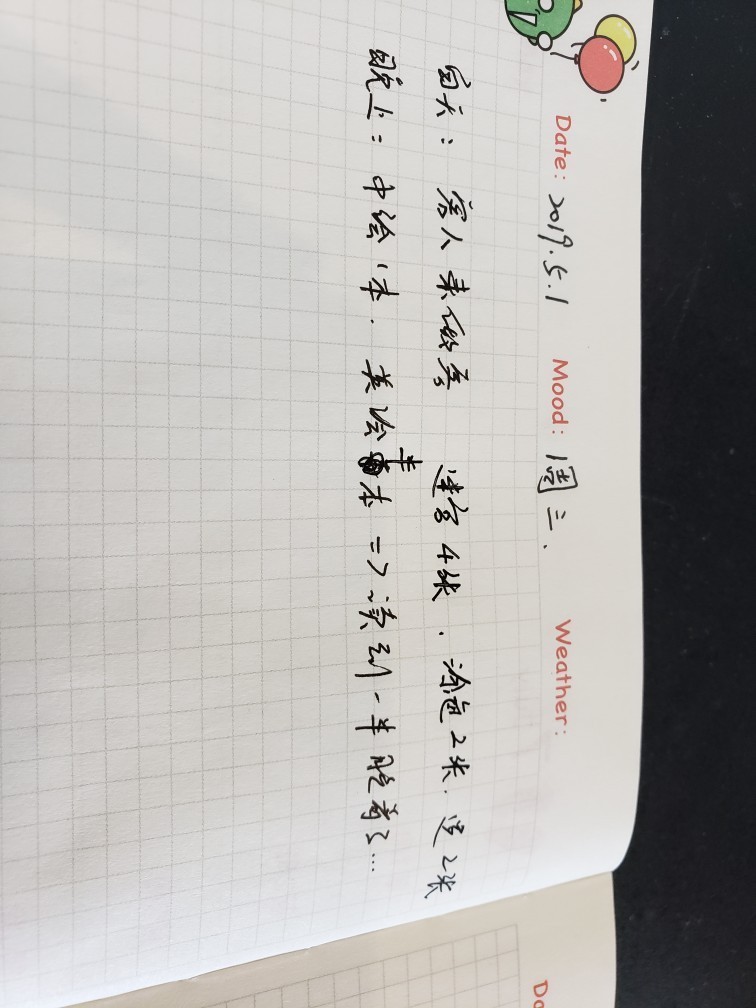 Date: 2019.5.1 Mood: 周三. Weather:
白天: 客人来做客 迷宫4张. 涂色2张. 连2张
晚上: 中绘1本. 英绘半本 => 读到一半睡着了...
Da